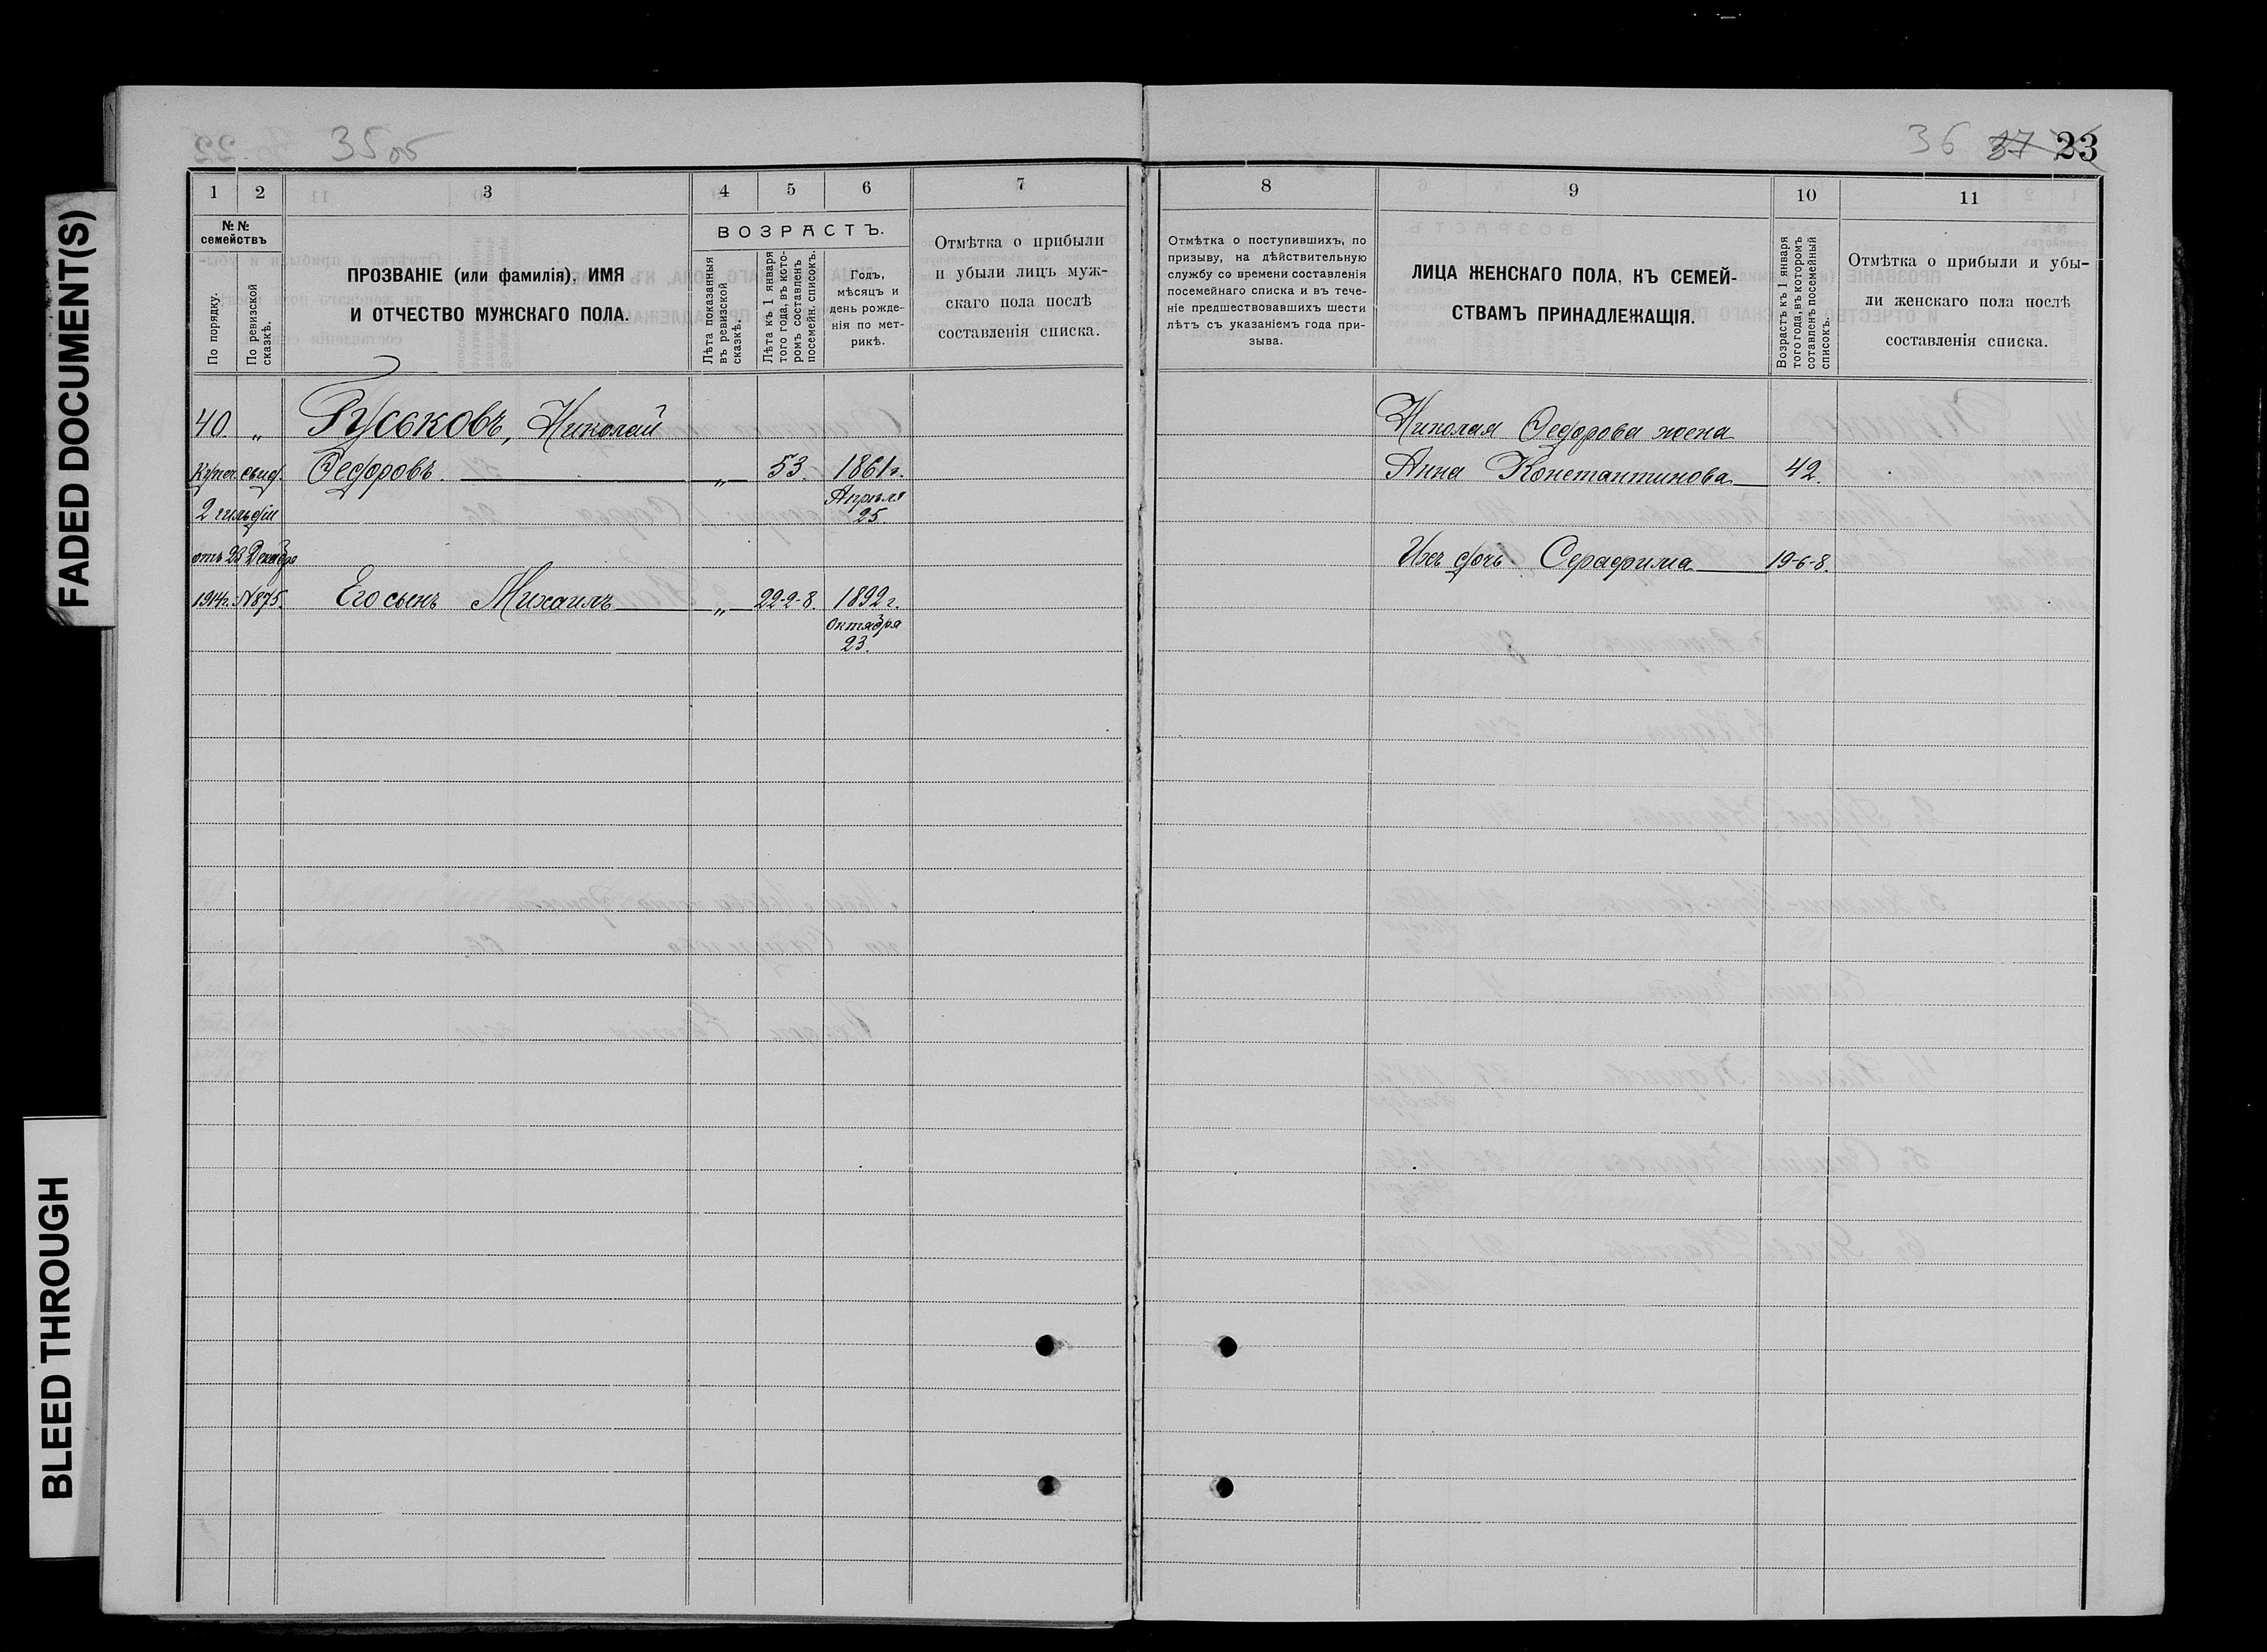 FADED DOCUMENT(S)
BLEED THROUGH
35 об
1 2 3 4 5 6 7
№№ семействъ
По порядку.
По ревизской сказкѣ.
ПРОЗВАНІЕ (или фамилія), ИМЯ
И ОТЧЕСТВО МУЖСКАГО ПОЛА.
ВОЗРАСТЪ.
Лѣта показанныя въ ревизской сказкѣ.
Лѣта къ 1 января того года, въ кото-ромъ составленъ посемейн. списокъ.
Годъ,
мѣсяцъ и
день рожде-
нія по мет-
рикѣ.
Отмѣтка о прибыли
и убыли лицъ муж-
скаго пола послѣ
составленія списка.
40. „ Гуськовъ, Николай
Купеч. свид. Ѳедоровъ. „ 53. 1861 г.
Апрѣля
2 гильдіи 25.
отъ 23 Декабря
1914г. №875. Его сынъ Михаилъ „ 22-2-8. 1892 г.
Октября
23.
36 37 23
8 9 10 11
Отмѣтка о поступившихъ, по
призыву, на дѣйствительную
службу со времени составленія
посемейнаго списка и въ тече-
ніе предшествовавшихъ шести
лѣтъ съ указаніемъ года при-
зыва.
ЛИЦА ЖЕНСКАГО ПОЛА, КЪ СЕМЕЙ-
СТВАМЪ ПРИНАДЛЕЖАЩІЯ.
Возрастъ къ 1 января
того года, въ которомъ
составленъ посемейный
списокъ.
Отмѣтка о прибыли и убы-
ли женскаго пола послѣ
составленія списка.
Николая Ѳедорова жена
Анна Константинова 42.
Ихъ дочь Серафима 19-6-8.